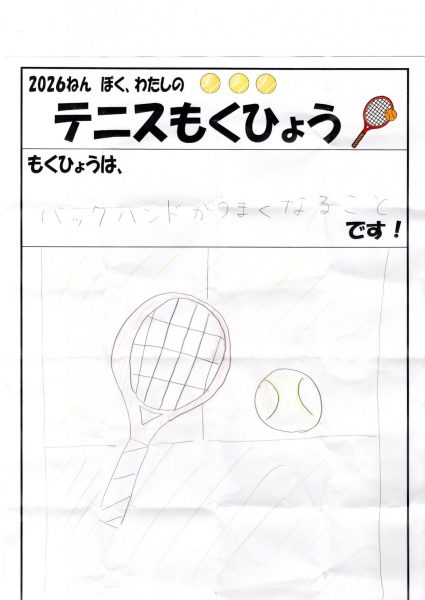 2026ねん ぼく、わたしの
テニスもくひょう
もくひょうは、
バックハンドがうまくなること
です!